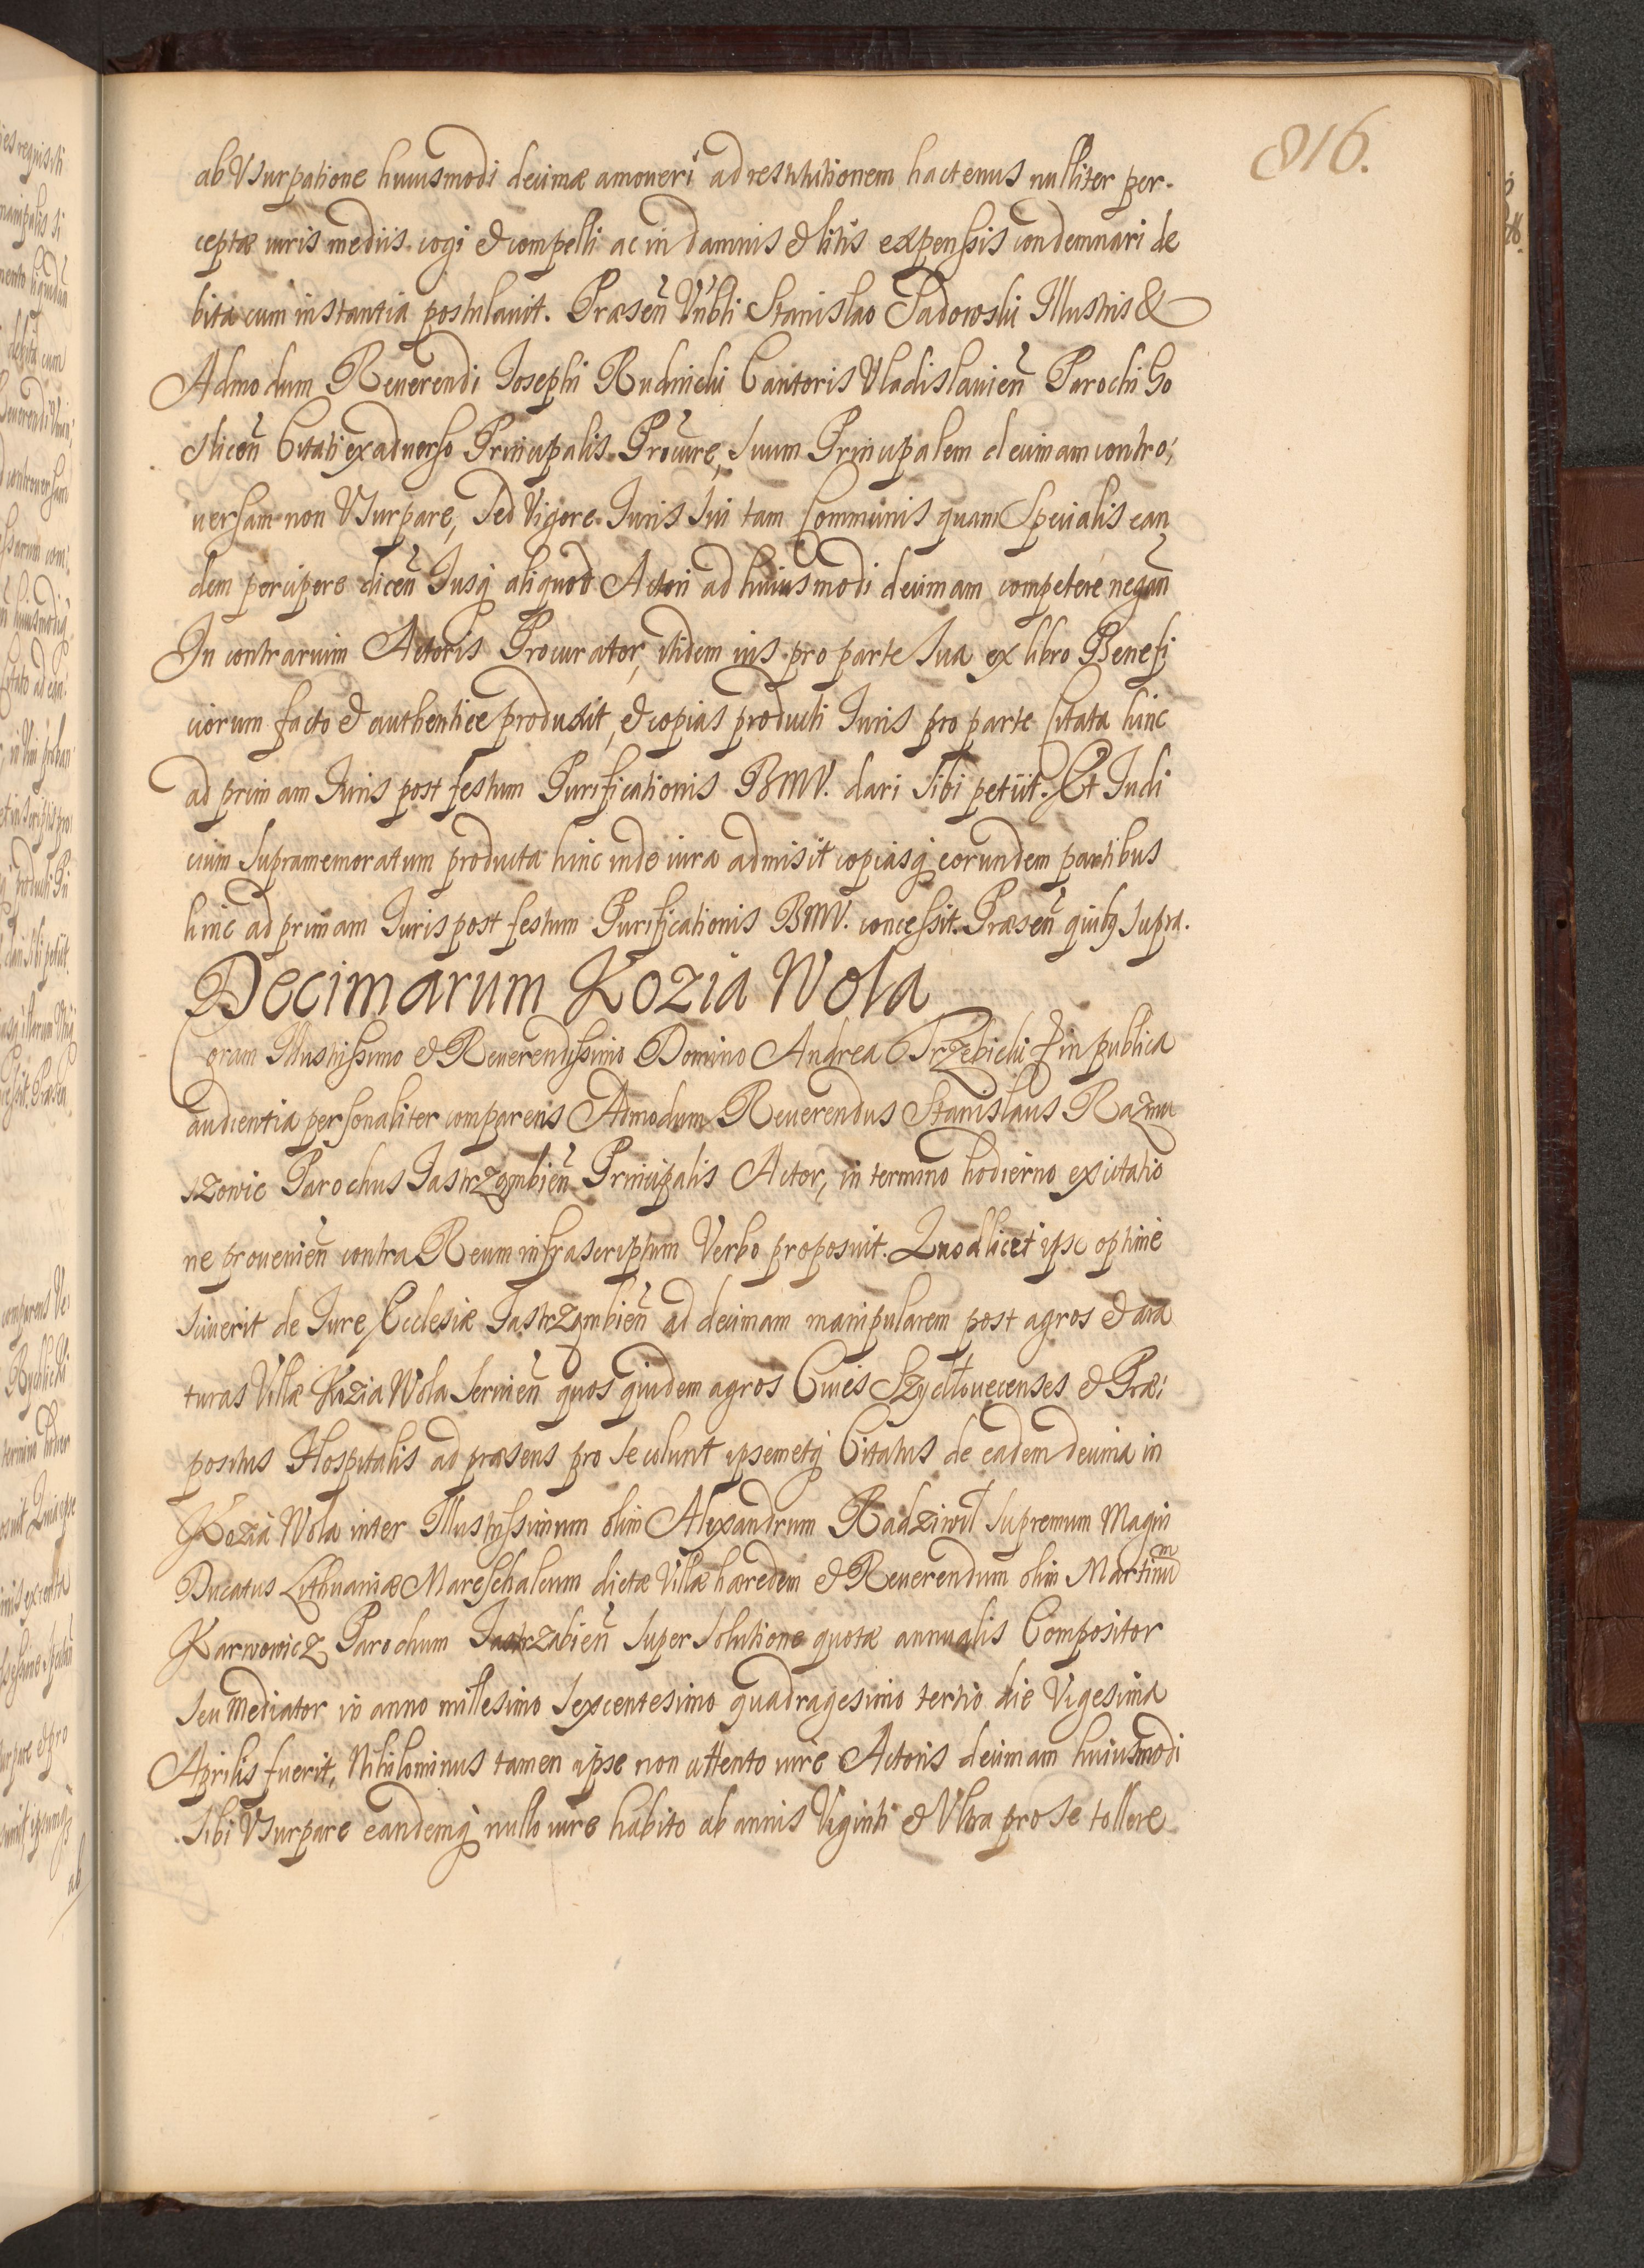 816.
ab Vsurpatione huiusmodi decimæ amoueri ad restitutionem hactenus nulliter per-
ceptæ iuris mediis cogi et compelli ac in damnis et litis expensis condemnari de
bita cum instantia postulauit. Præseñ Vñbli Stanislao Sadowski Illustris &
Admodum Reuerendi Josephi Rudnicki Cantoris Vladislauieñ Parochi Go
sliceñ Citati ex aduerso Principalis Procure, suum Principalem decimam contro;
uersam non Vsurpare, sed Vigore Juris sui tam Communis quam Specialis ean
dem percipere diceñ Jusq aliquod Actori ad huiusmodi decimam competere negañ
In contrarium Actoris Procurator, itidem ius pro parte sua ex libro Benefi
ciorum facto et authentice produxit, et copias producti Juris pro parte Citata hinc
ad primam Juris post festum Purificationis BMV. dari sibi petiit. Et Judi
cium supramemoratum producta hinc inde iura admisit copiasq eorundem partibus
hinc ad primam Juris post festum Purificationis BMV. concessit. Præseñ quibq supra.
Decimarum Kozia Wola
Coram Illustrissimo et Reuerendissimo Domino Andrea Trzebicki in publica
audientia personaliter comparens Admodum Reuerendus Stanislaus Razmu
szowic Parochus Jastrząmbieñ Principalis Actor, in termino hodierno ex citatio
ne prouenieñ contra Reum infrascriptum Verbo proposuit. Quod licet ipse optime
sciuerit de Jure Ecclesiæ Jastrząmbieñ ad decimam manipularem post agros et ara
turas Villæ Kozia Wola seruieñ quos quidem agros Ciues Szydłouecenses et Præ;
positus Hospitalis ad præsens pro se colunt ipsemetq Citatus de eadem decima in
Kozia Wola inter Illustrissimum olim Alexandrum Radziwił supremum Magni
Ducatus Lithuaniæ Mareschalcum dictæ Villæ hæredem et Reuerendum olim Martinum
Karwowicz Parochum Jastrzabieñ super solutione quotæ annualis Compositor
seu Mediator in anno millesimo sexcentesimo quadragesimo tertio die Vigesima
Aprilis fuerit, Nihilominus tamen ipse non attento iure Actoris decimam huiusmodi
sibi Vsurpare eandemq nullo iure habito ab annis Viginti et Vltra pro se tollere